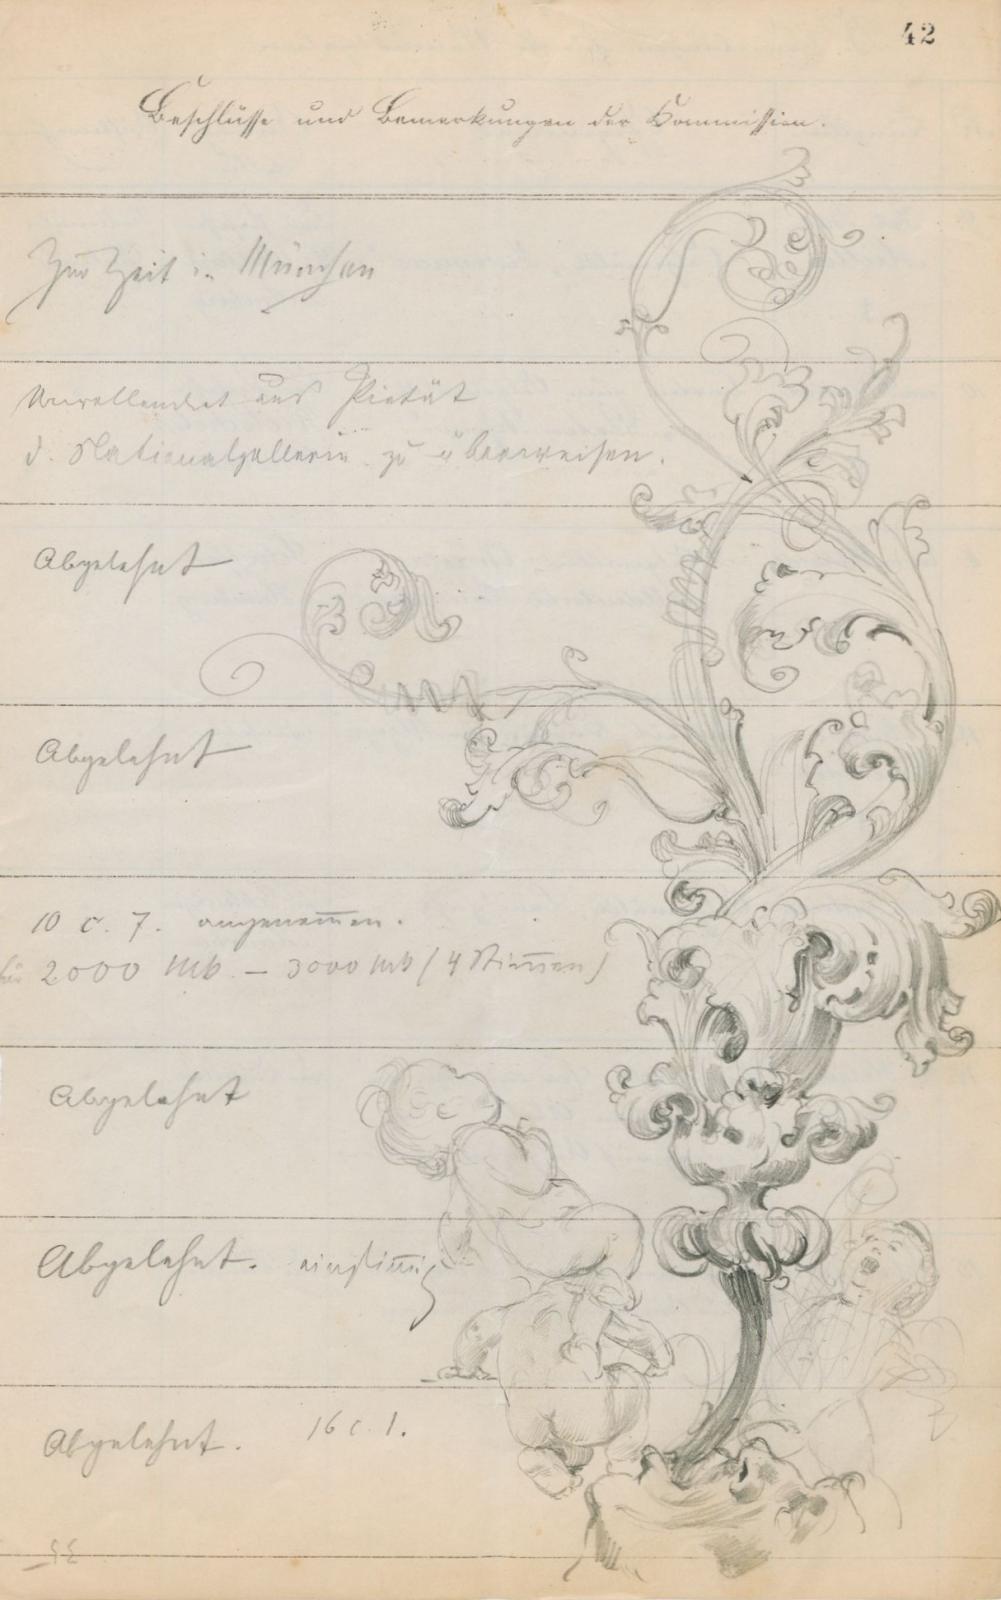 42
Beschlüsse und Bemerkungen der Commission.
Zur Zeit in München
Unvollendet aus Pietät
d. Nationalgallerie zu überweisen.
Abgelehnt
Abgelehnt
10 c. 7. angenom̅en.
für 2000 Mk – 3000 Mk (4 Stim̅en)
Abgelehnt
Abgelehnt. einstim̅ig
Abgelehnt. 16 c. 1.